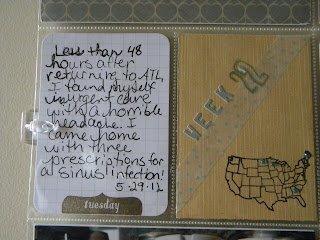 Less than 48
hours after
returning to ATL,
I found myself
in urgent care
with a horrible
headache. I
came home
with three
prescriptions for
a sinus infection!
5-29-12
tuesday
WEEK 22